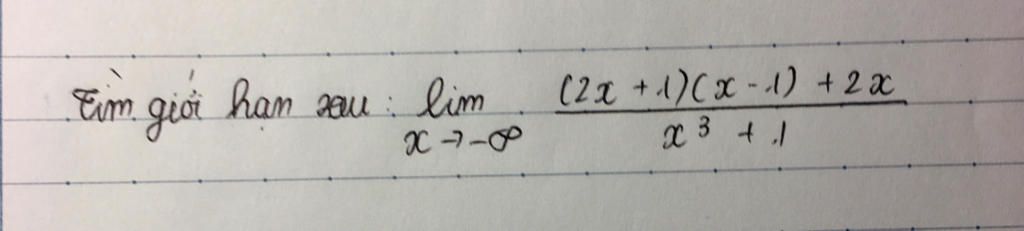 Tìm giới hạn sau : lim x→-∞ ((2x+1)(x-1)+2x)/(x³+1)